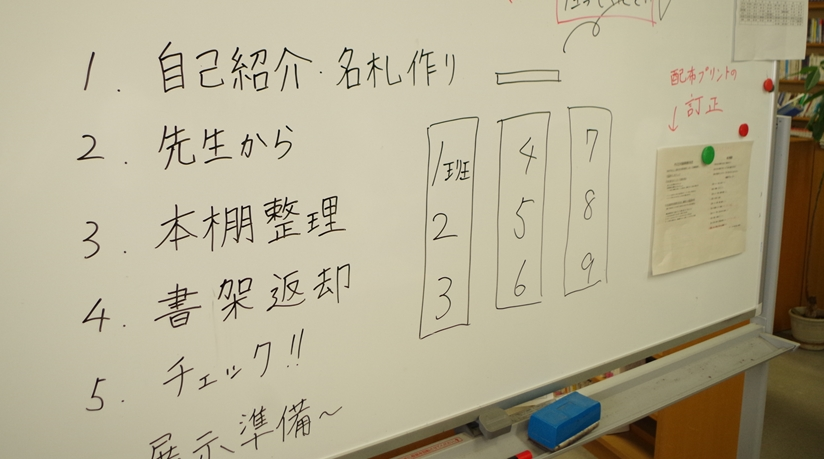 1. 自己紹介・名札作り
2. 先生から
3. 本棚整理
4. 書架返却
5. チェック!!
展示準備~
1班 4 7
2 5 8
3 6 9
配布プリントの
↓訂正